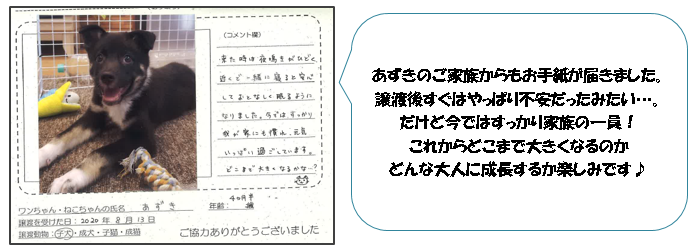 (コメント欄)
来た時は夜鳴きがひどく、
近くで一緒に寝ると安心
しておとなしく眠るように
なりました。今では、すっかり
我が家にも慣れ、元気
いっぱい過ごしています。
どこまで大きくなるかな…?
ワンちゃん・ねこちゃんの氏名 あずき 年齢:
譲渡を受けた日:2020年8月13日
譲渡動物:子犬・成犬・子猫・成猫
ご協力ありがとうございました
あずきのご家族からもお手紙が届きました。
譲渡後すぐはやっぱり不安だったみたい…。
だけど今ではすっかり家族の一員!
これからどこまで大きくなるのか
どんな大人に成長するか楽しみです♪